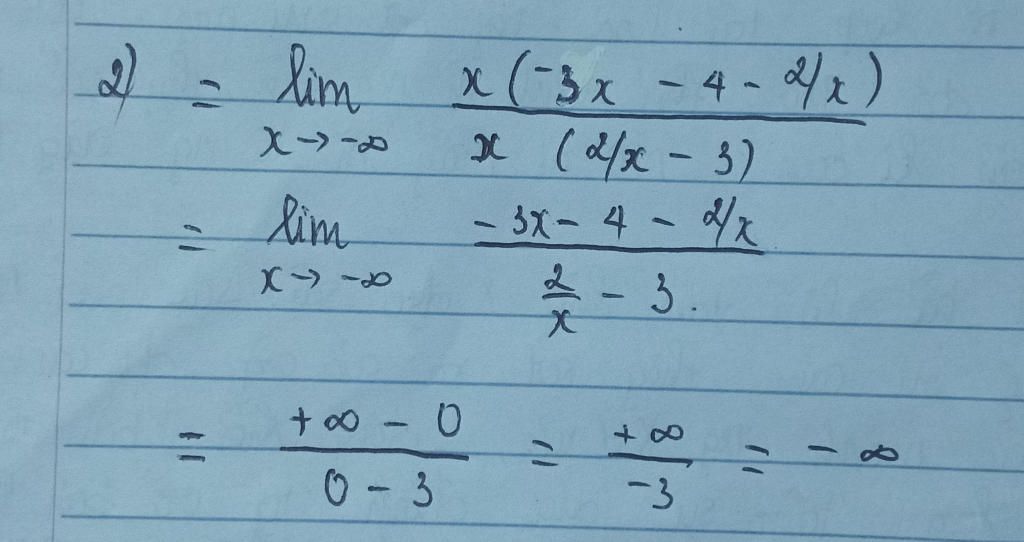 2) = lim x(-3x - 4 - 2/x)
x→-∞ x (2/x - 3)
= lim -3x - 4 - 2/x
x→ -∞ 2/x - 3.
= +∞ - 0 / 0 - 3 = +∞ / -3 = - ∞